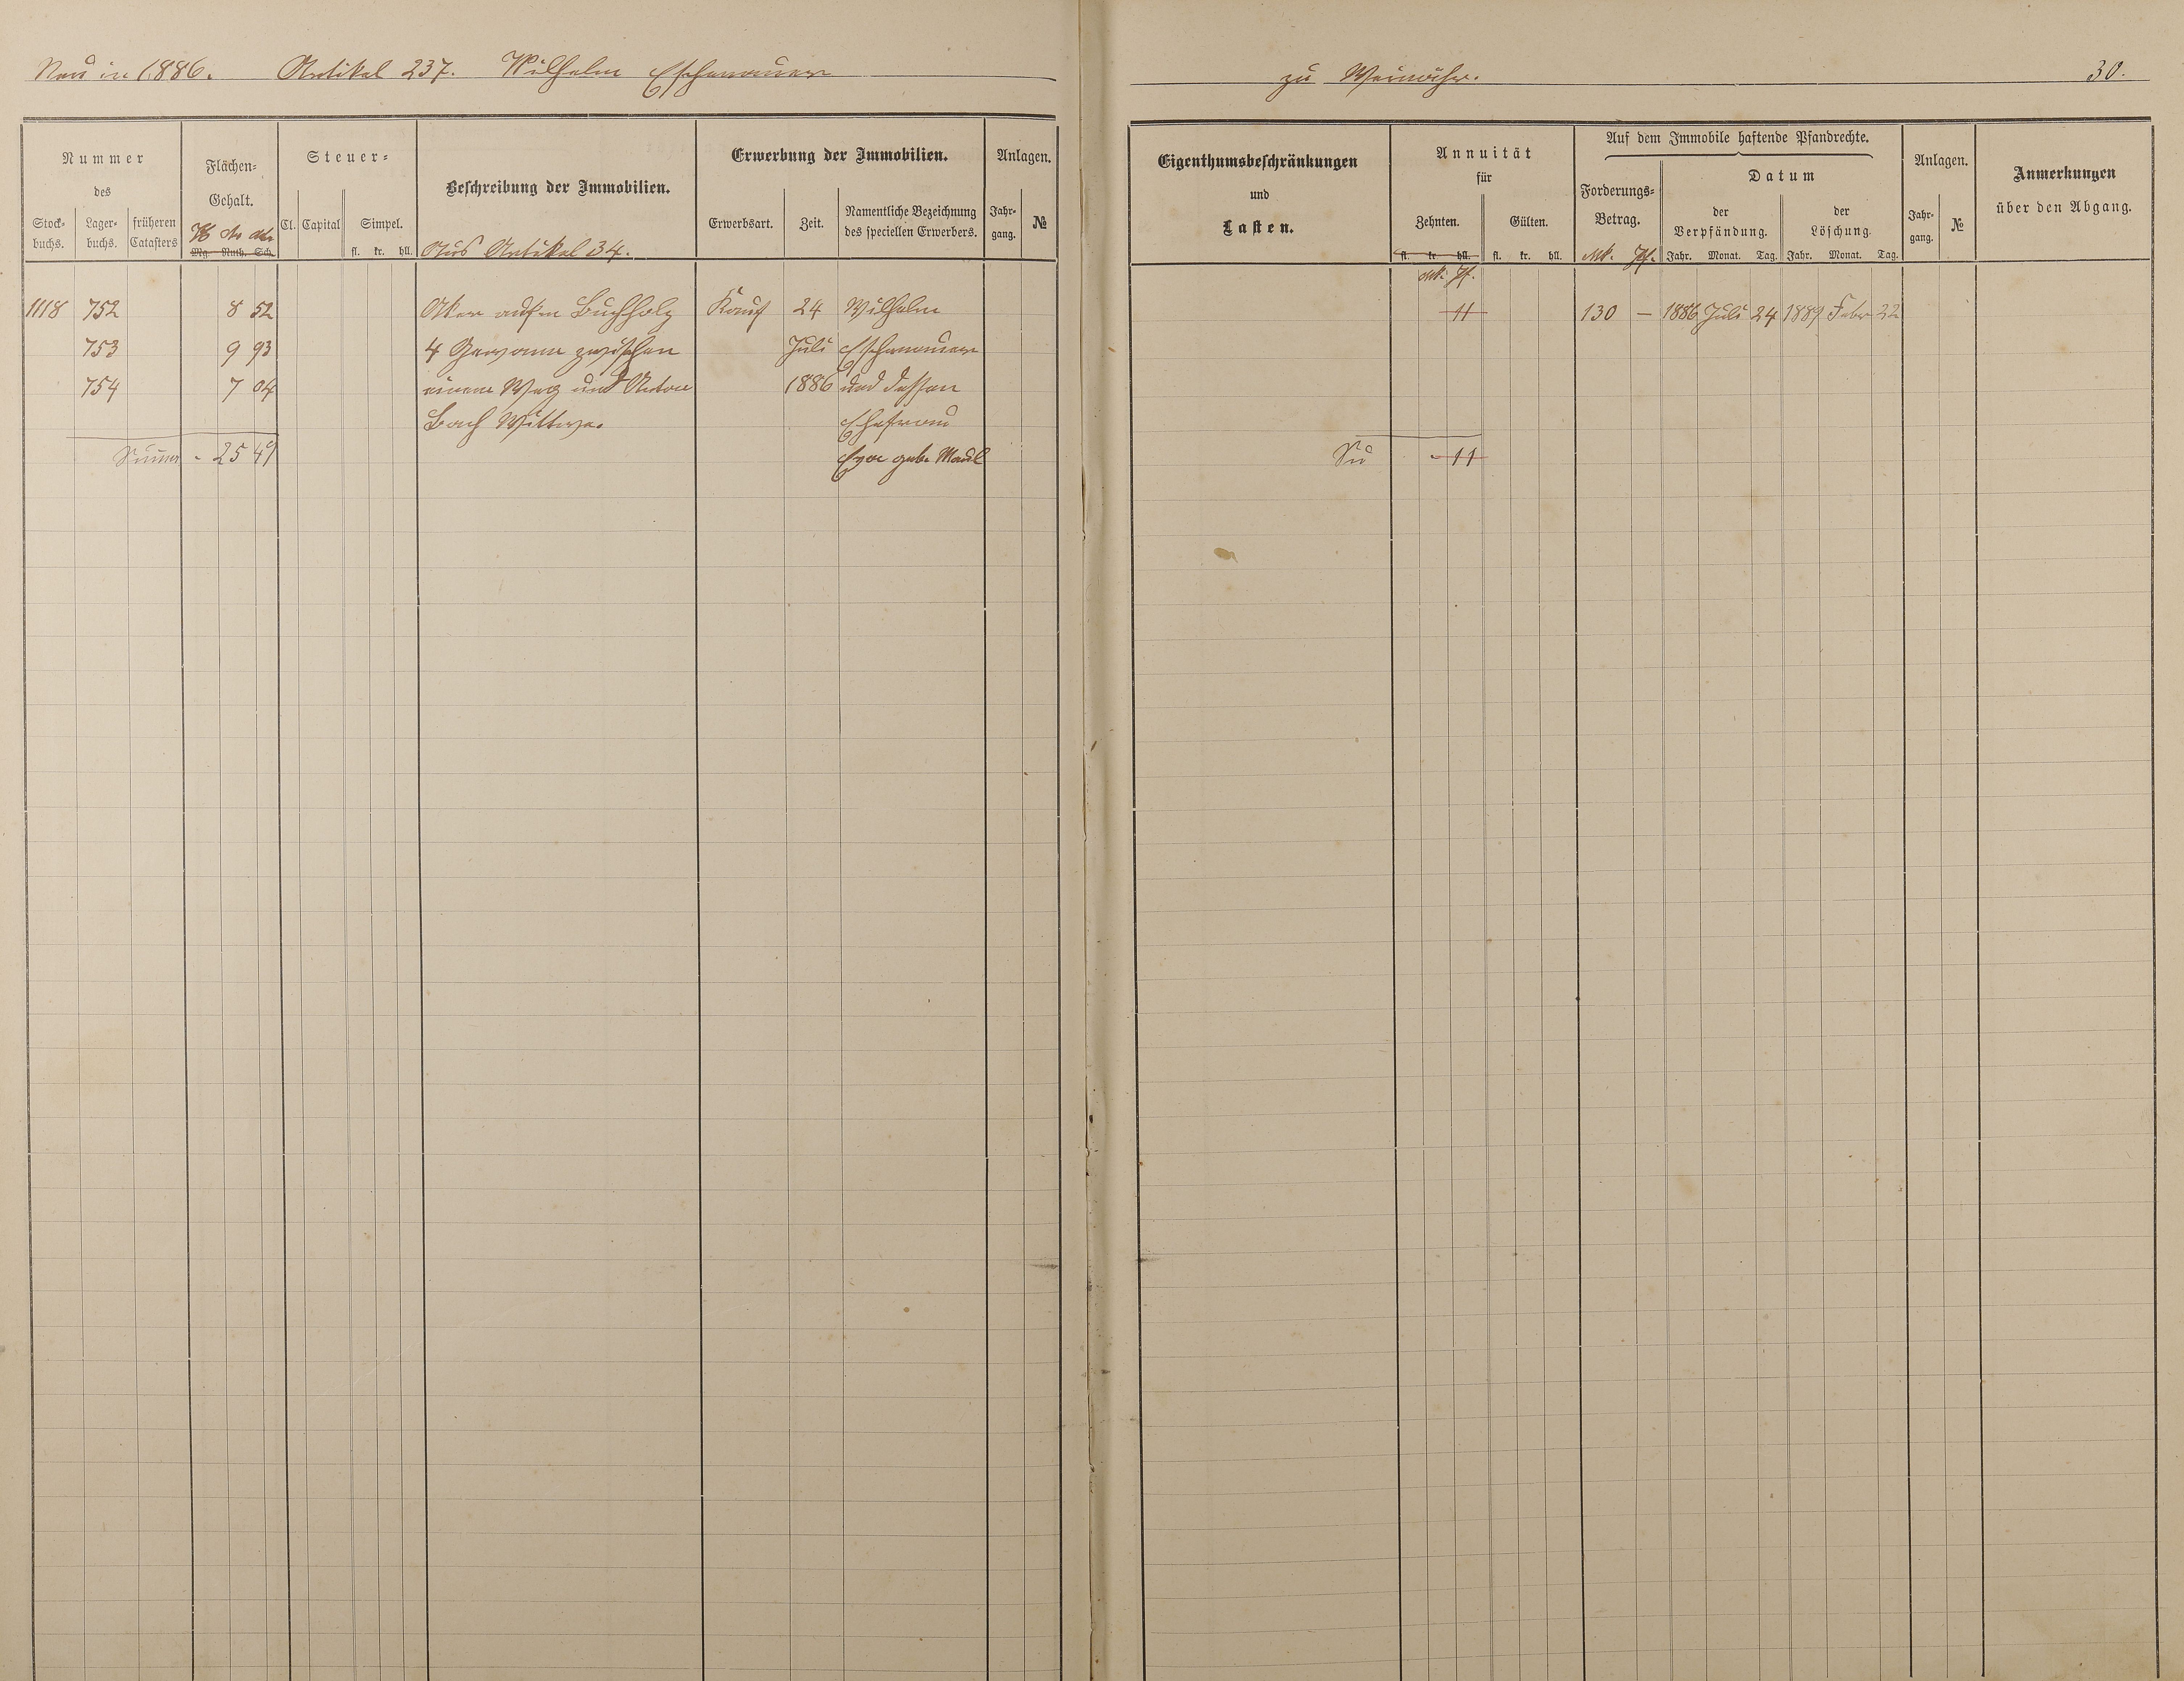 Neu in 1886. Artikel 237. Wilhelm Eschenauer zu Weinähr. 30.
Nummer
des
Stock-
buchs.
Lager-
buchs.
früheren
Catasters
Flächen-
Gehalt.
H Ar Mr
Mg. Ruth. Sch.
Steuer-
Cl. Capital Simpel.
fl. kr. hll.
Beschreibung der Immobilien.
Aus Artikel 34.
Erwerbung der Immobilien.
Erwerbsart. Zeit.
Namentliche Bezeichnung
des speciellen Erwerbers.
Anlagen.
Jahr-
gang.
№
Eigenthumsbeschränkungen
und
Lasten.
Annuität
für
Zehnten. Gülten.
fl. kr. hll. fl. kr. hll.
Mk. Pf.
Auf dem Immobile haftende Pfandrechte.
Forderungs-
Betrag.
Mk. Pf.
Datum
der
Verpfändung.
der
Löschung.
Jahr. Monat. Tag. Jahr. Monat. Tag.
Anlagen.
Jahr-
gang.
№
Anmerkungen
über den Abgang.
1118 752 8 52 Aker auf'm Buchholz Kauf 24 Wilhelm 11 130 — 1886 Juli 24 1889 Febr 22
753 9 93 4 Gewann zwischen Juli Eschenauer
754 7 04 einem Weg und Anton 1886 und dessen
Bach Wittwe. Ehefrau
Summa - 25 49 Eva geb. Maul Su - 11